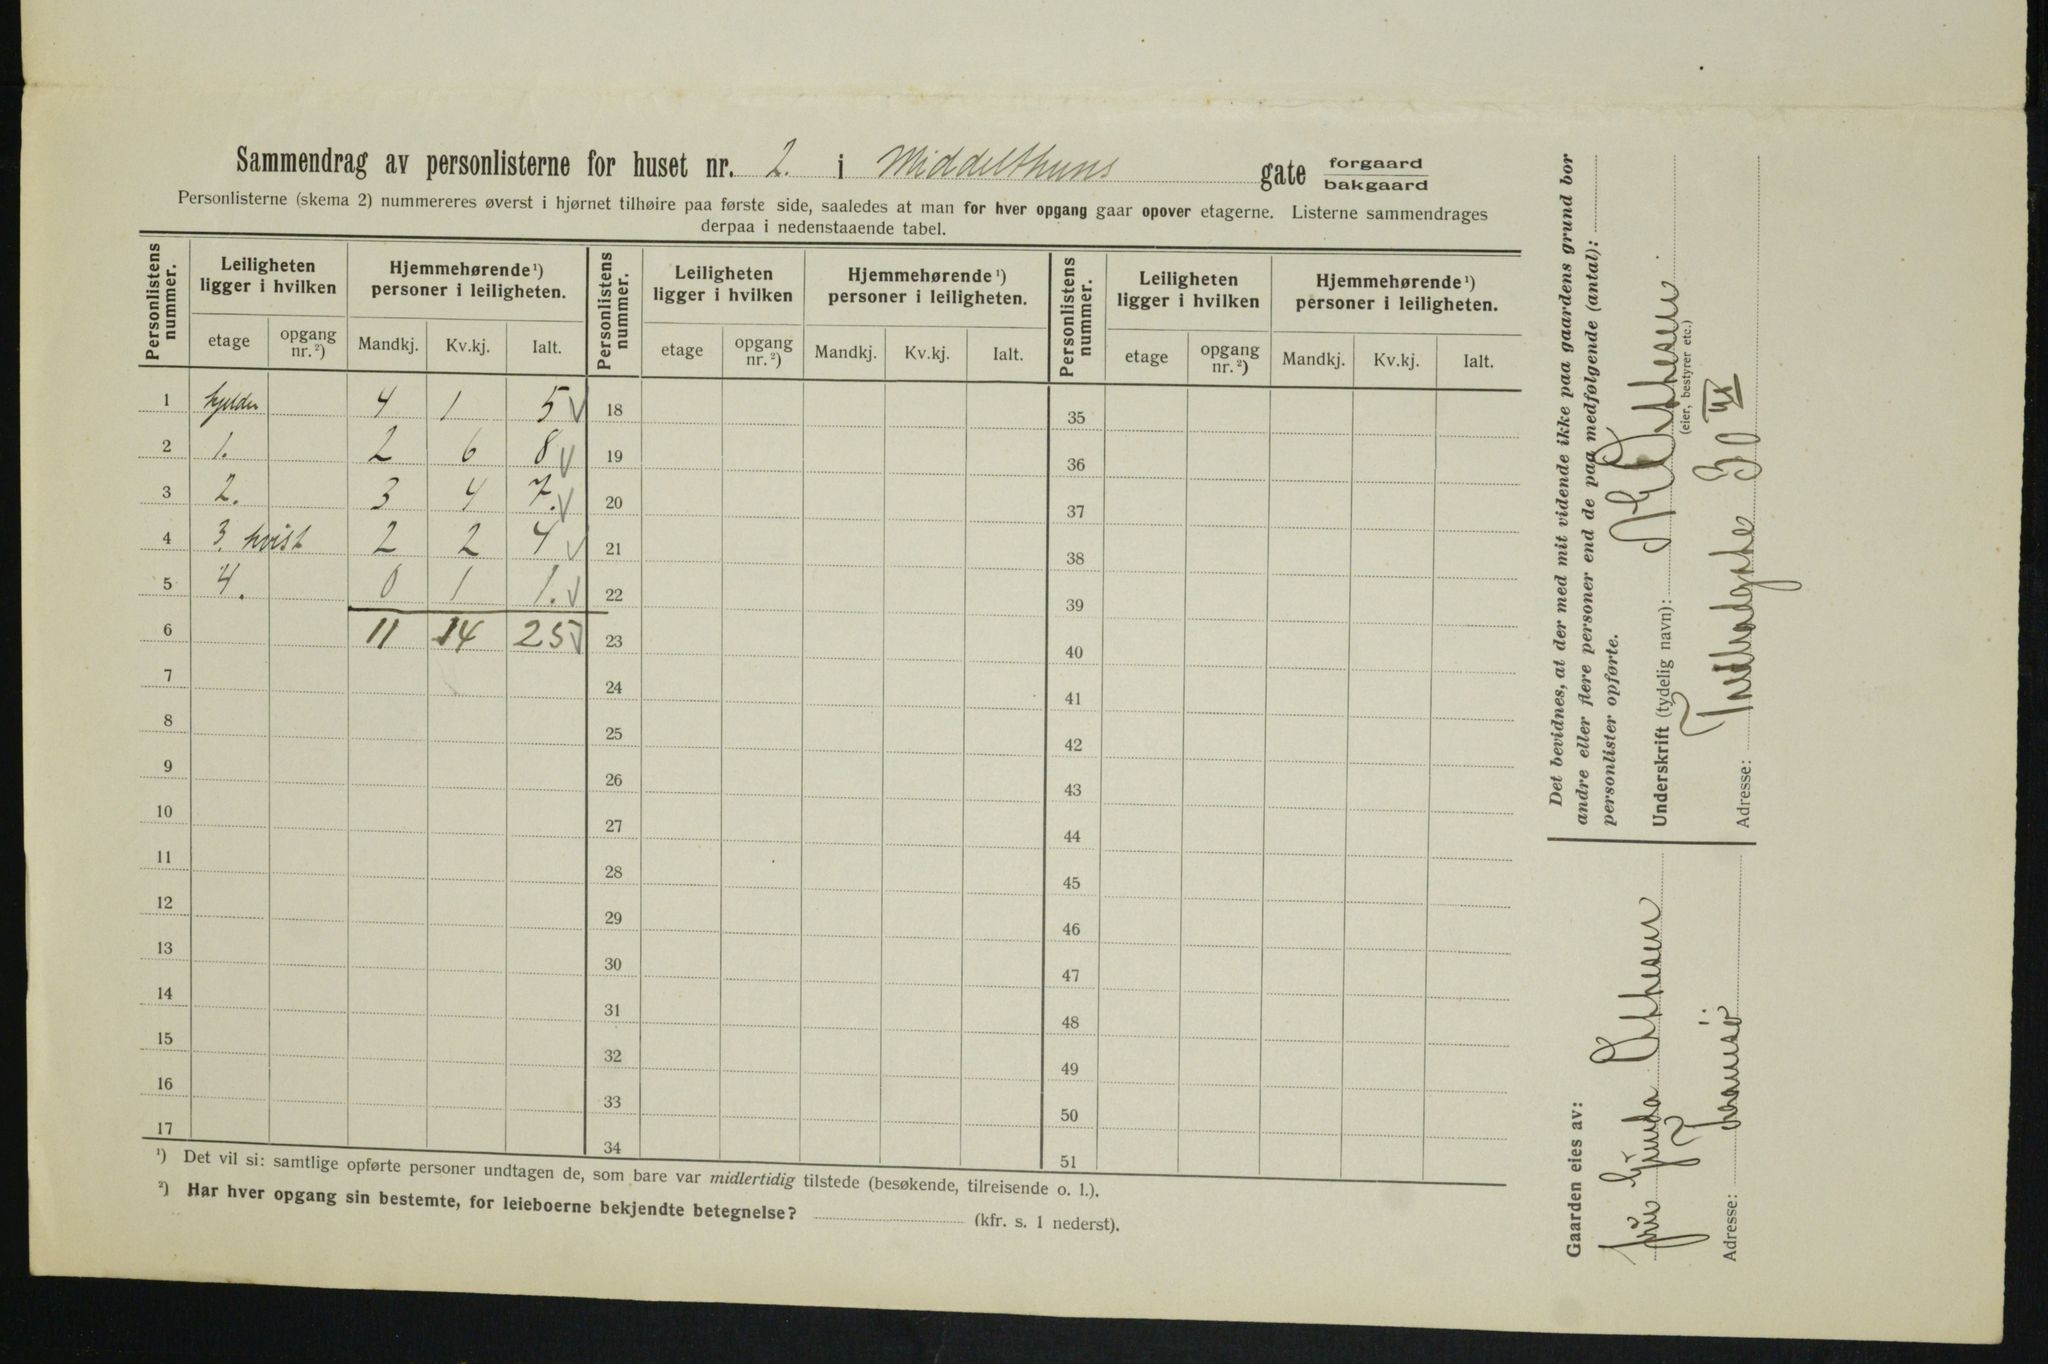 Sammendrag av personlisterne for huset nr. 2. i Middelthuns gate forgaard
bakgaard
Personlisterne (skema 2) nummereres øverst i hjørnet tilhøire paa første side, saaledes at man for hver opgang gaar opover etagerne. Listerne sammendrages
derpaa i nedenstaaende tabel.
Personlistens nummer. Leiligheten ligger i hvilken Hjemmehørende ¹) personer i leiligheten. Personlistens nummer. Leiligheten ligger i hvilken Hjemmehørende ¹) personer i leiligheten. Personlistens nummer. Leiligheten ligger i hvilken Hjemmehørende ¹) personer i leiligheten.
etage opgang nr. ²) Mandkj. Kv.kj. Ialt. etage opgang nr. ²) Mandkj. Kv.kj. Ialt. etage opgang nr. ²) Mandkj. Kv.kj. Ialt.
1 kjelder 4 1 5 18 35
2 1. 2 6 8 19 36
3 2. 3 4 7. 20 37
4 3. hvist 2 2 4 21 38
5 4. 0 1 1. 22 39
6 11 14 25 23 40
7 24 41
8 25 42
9 26 43
10 27 44
11 28 45
12 29 46
13 30 47
14 31 48
15 32 49
16 33 50
17 34 51
¹) Det vil si: samtlige opførte personer undtagen de, som bare var midlertidig tilstede (besøkende, tilreisende o. l.).
²) Har hver opgang sin bestemte, for leieboerne bekjendte betegnelse? (kfr. s. 1 nederst).
Gaarden eies av:
Adresse:
Det bevidnes, at der med mit vidende ikke paa gaardens grund bor
andre eller flere personer end de paa medfølgende (antal):
personlister opførte.
Underskrift (tydelig navn):
(eier, bestyrer etc.)
Adresse: 30